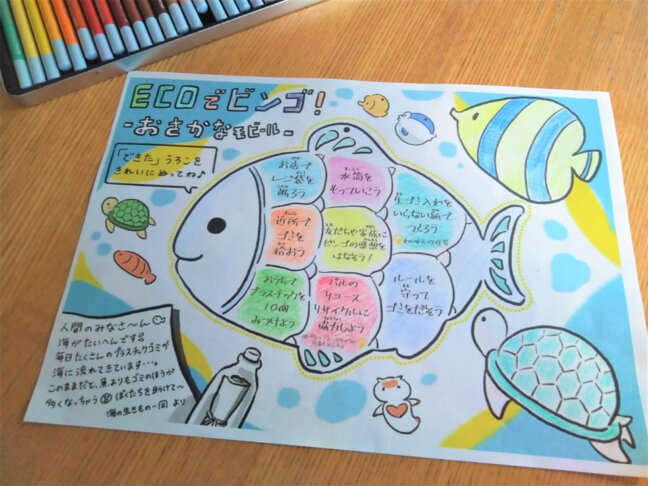 ECOでビンゴ!
-おさかなモビール-
「できた」うろこを
きれいにぬってね♪
お店で
レジ袋を
断ろう
水筒を
もっていこう
生ゴミ入れを
いらない紙で
つくろう
近所で
ゴミを
拾おう
友だちや家族に
ビンゴの感想を
はなそう!
おうちで
プラスチックを
10個
みつけよう
パルの
リユース
リサイクルに
協力しよう
ルールを
守って
ゴミをだそう
人間のみなさ~ん
海がたいへんです
毎日たくさんのプラスチックゴミが
海に流れてきています…。
このままだと、魚よりもゴミのほうが
多くなっちゃう ぼくたちを助けて~
海の生きもの一同 より